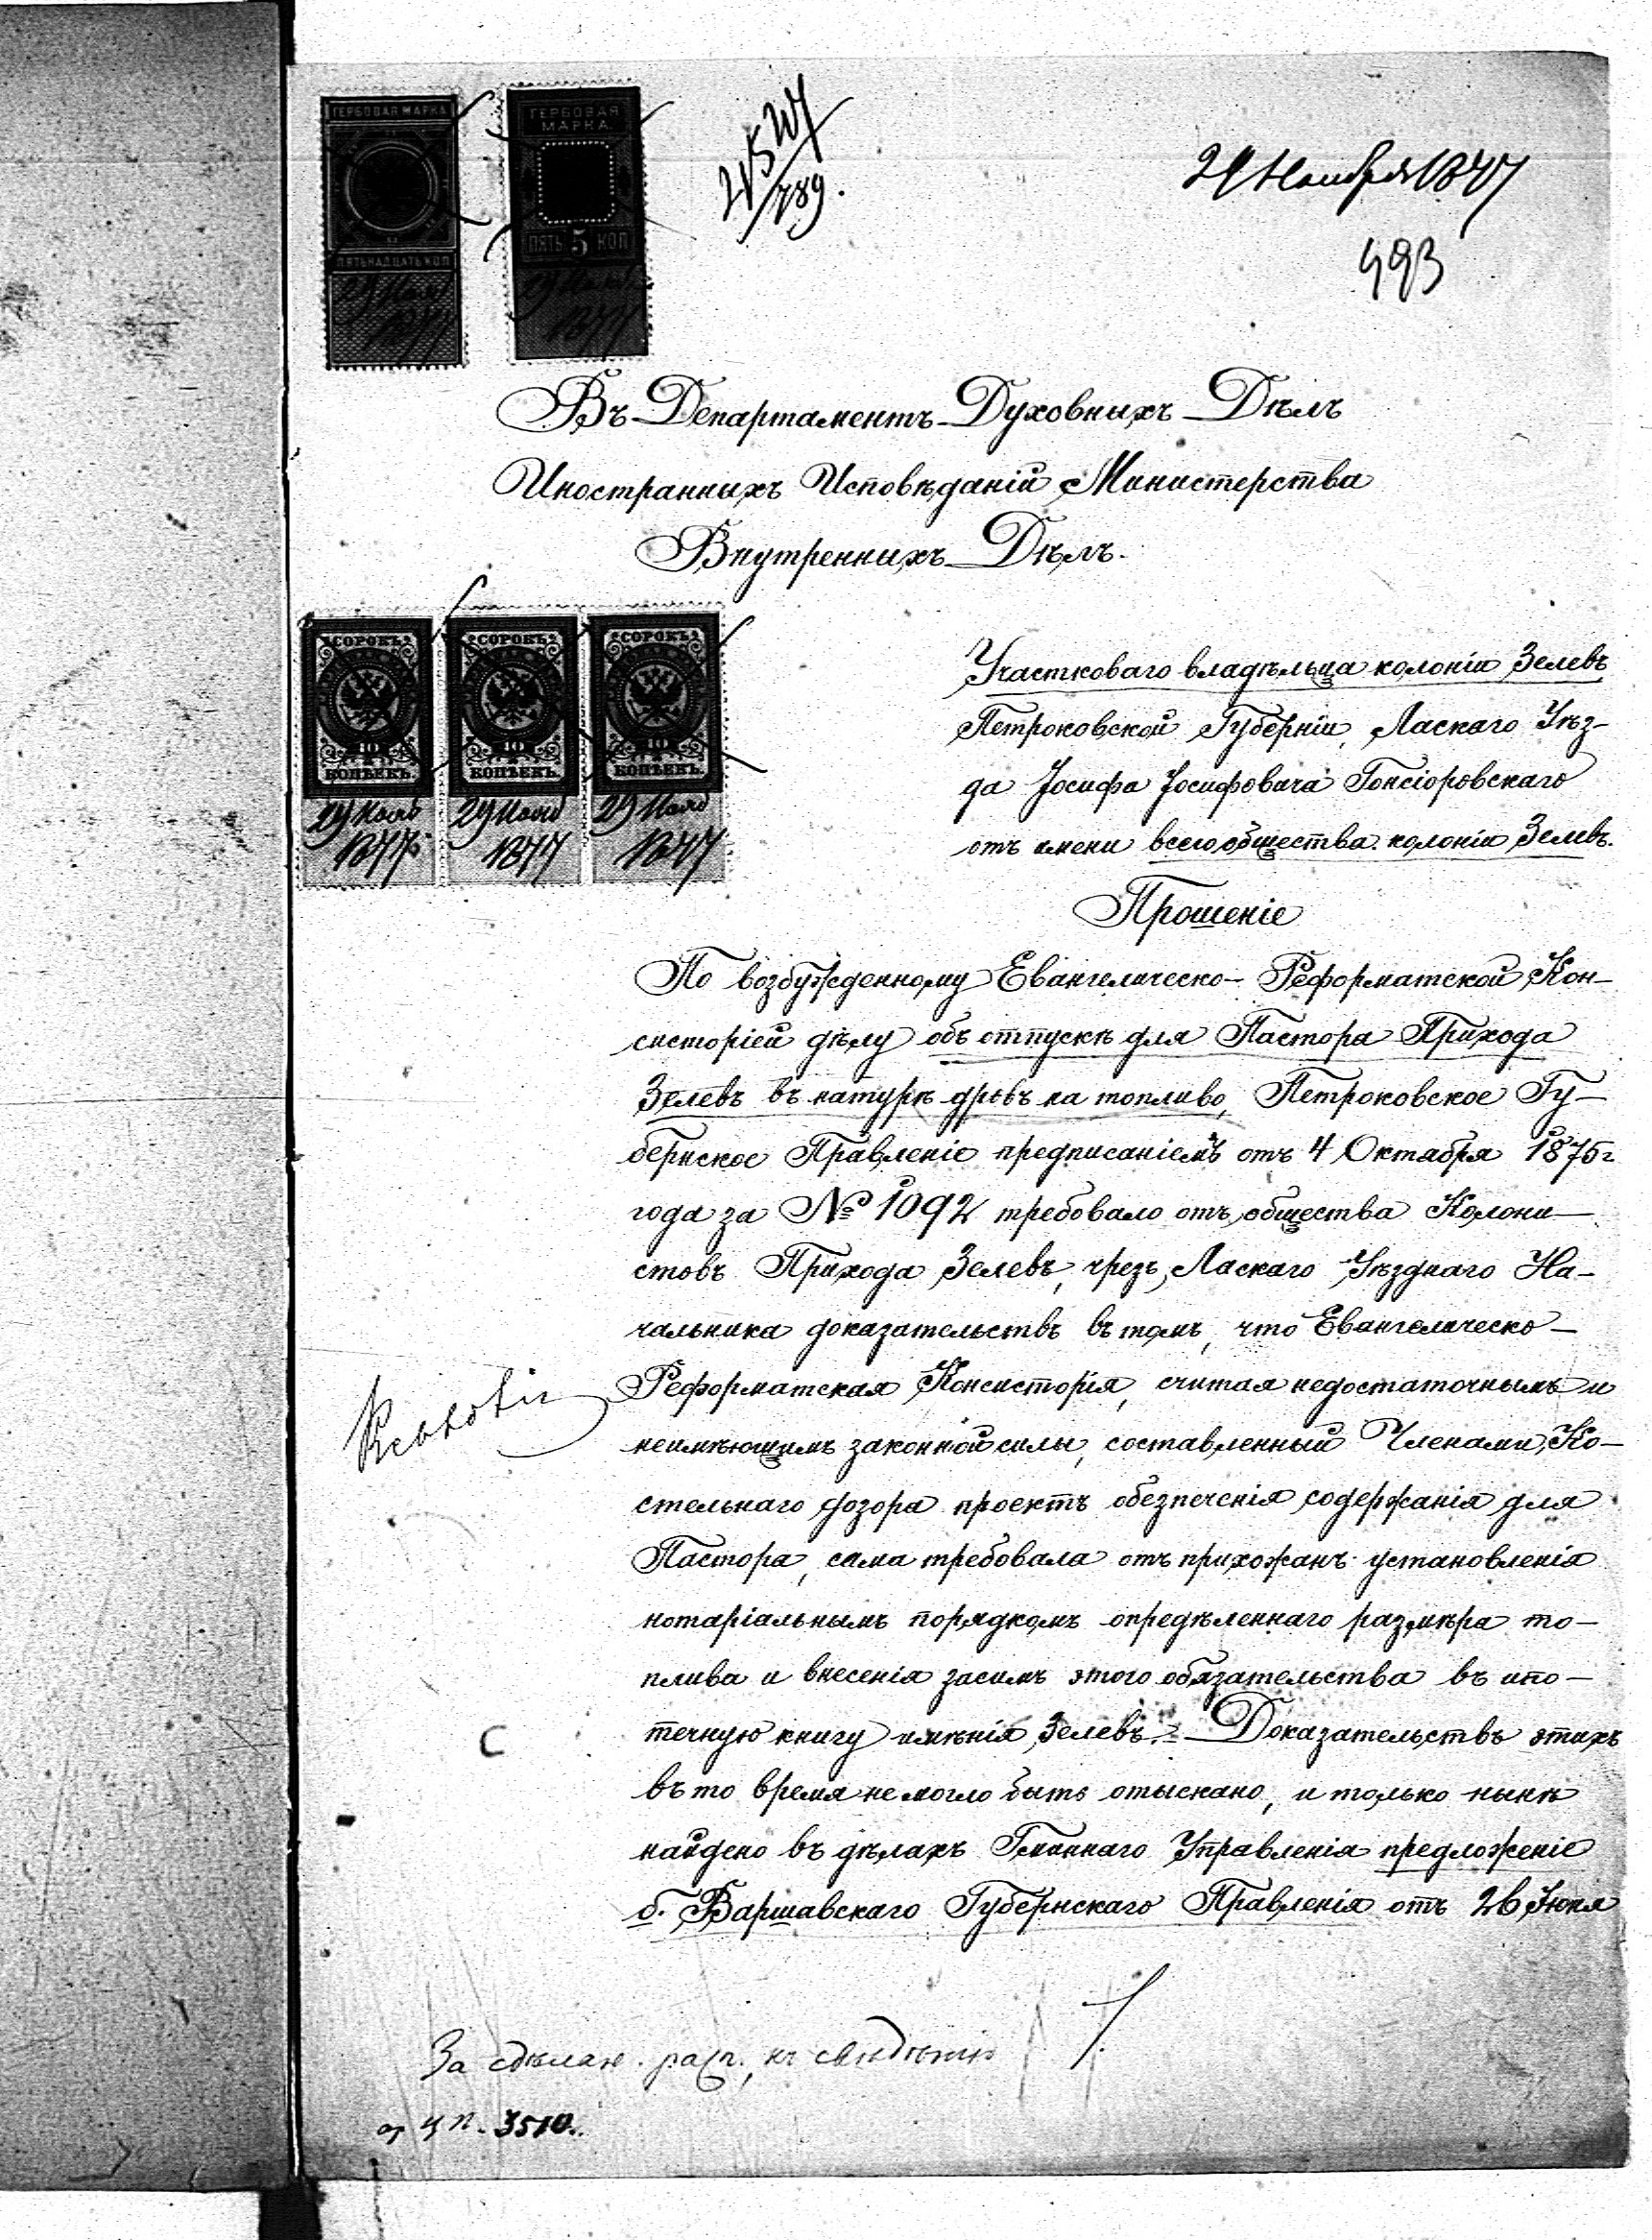 ГЕРБОВАЯ МАРКА
ПЯТЬНАДЦАТЬ КОП
29 Нояб
1877
ГЕРБОВАЯ
МАРКА
ПЯТЬ 5 КОП
29 Нояб
1877
789.
29 Ноября 1877
493
Въ Департаментъ Духовныхъ Дѣлъ
Иностранныхъ Исповѣданій Министерства
Внутреннихъ Дѣлъ.
СОРОКЪ
40
КОПѢЕКЪ
29 Нояб
1877
СОРОКЪ
40
КОПѢЕКЪ
29 Нояб
1877
СОРОКЪ
40
КОПѢЕКЪ
29 Нояб
1877
Участковаго владѣльца колоніи Зелевъ
Петроковской Губерніи, Ласкаго Уѣз-
да Іосифа Іосифовича Гонсіоровскаго
отъ имени всего общества колоніи Зелевъ.
Прошеніе
По возбужденному Евангелическо-Реформатской Кон-
систоріей дѣлу объ отпускѣ для Пастора Прихода
Зелевъ въ натурѣ дровъ на топливо, Петроковское Гу-
бернское Правленіе предписаніемъ отъ 4 Октября 1875 г
года за № 1092 требовало отъ общества Колони-
стовъ Прихода Зелевъ, чрезъ Ласкаго Уѣзднаго На-
чальника доказательствъ въ томъ, что Евангелическо-
Реформатская Консисторія, считая недостаточнымъ и
неимѣющимъ законной силы, составленный Членами Ко-
стельнаго дозора проектъ обезпеченія содержанія для
Пастора, сама требовала отъ прихожанъ установленія
нотаріальнымъ порядкомъ опредѣленнаго размѣра то-
плива и внесенія засимъ этого обязательства въ ипо-
течную книгу имѣнія Зелевъ. - Доказательствъ этихъ
въ то время не могло быть отыскано, и только нынѣ
найдено въ дѣлахъ Гминнаго Управленія предложеніе
б. Варшавскаго Губернскаго Правленія отъ 26 Іюня
За сдѣлан. расп. къ свѣдѣнію
3510.